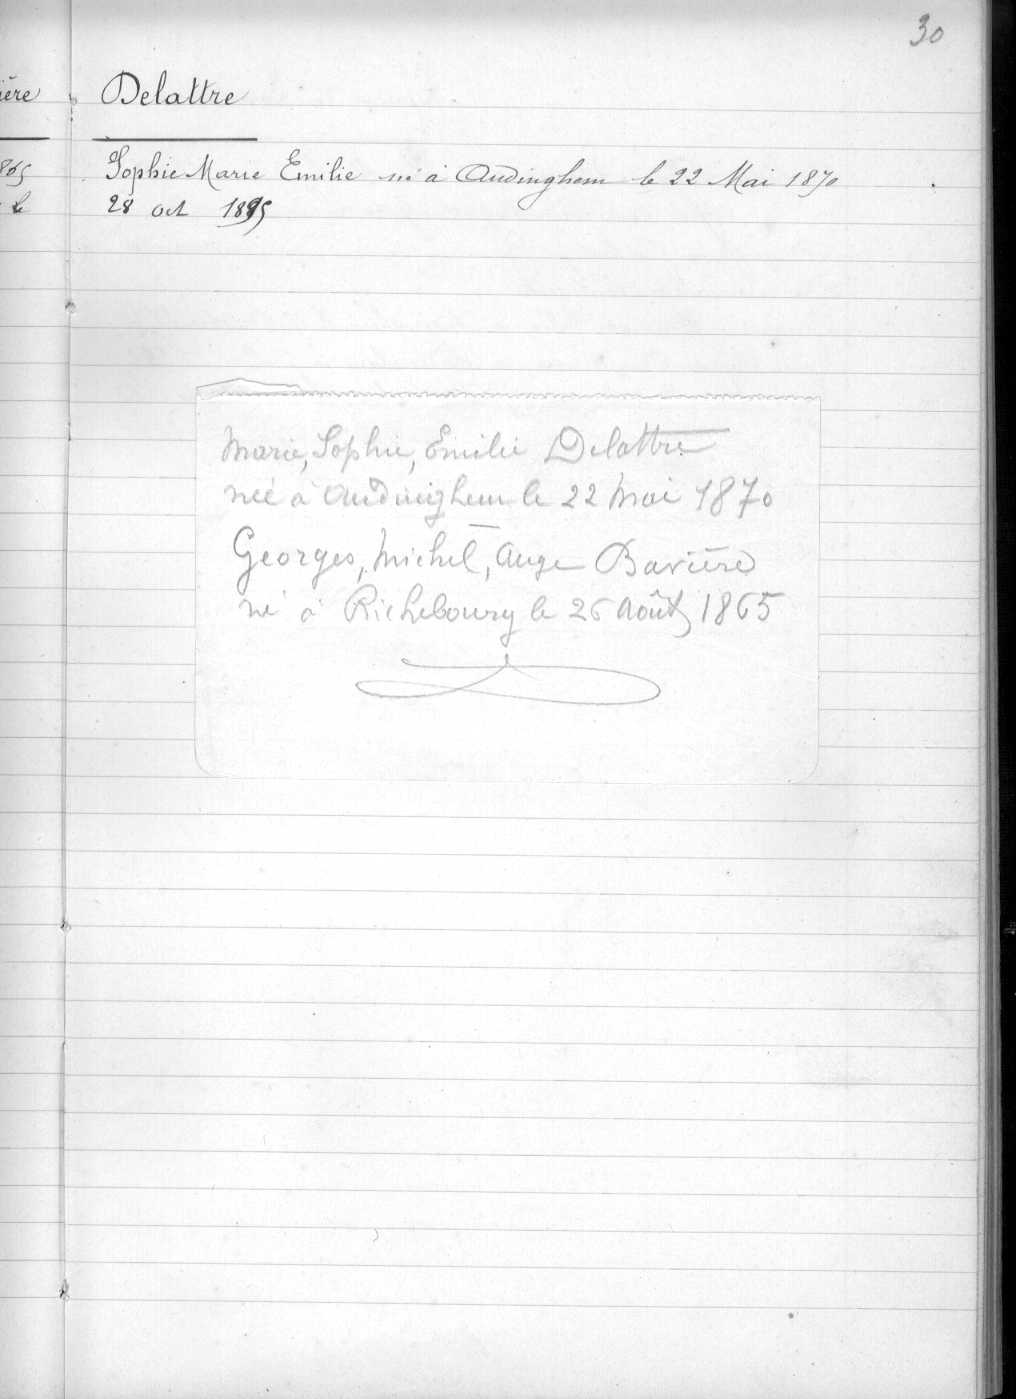 30
ière
Delattre
865
Sophie Marie Emilie né à Audinghem le 22 Mai 1870
le
28 oct 1895
Marie, Sophie, Emilie Delattre
née à Audinghem le 22 Mai 1870
Georges, Michel, Ange Bavière
né à Richebourg le 26 Août 1865